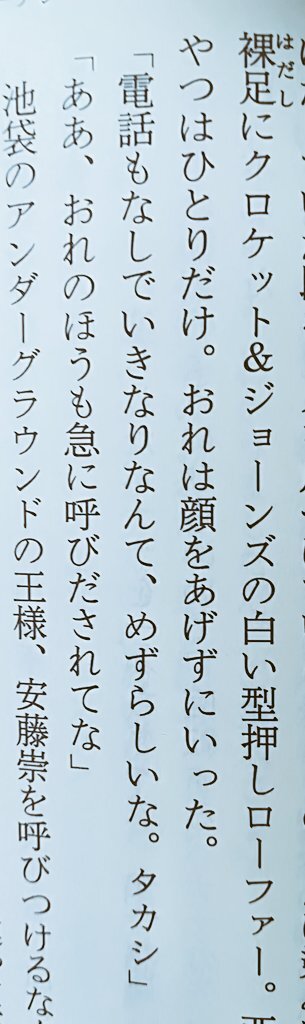 裸足にクロケット&ジョーンズの白い型押しローファー。
やつはひとりだけ。おれは顔をあげずにいった。
「電話もなしでいきなりなんて、めずらしいな。タカシ」
「ああ、おれのほうも急に呼びだされてな」
池袋のアンダーグラウンドの王様、安藤崇を呼びつけるな